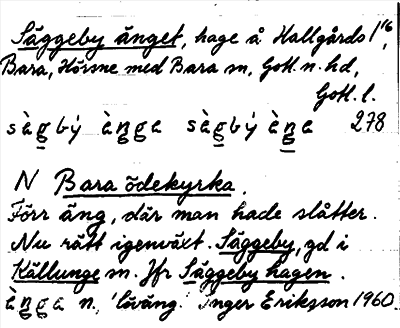 Säggeby änget, hage å Hallgårds 1¹⁶,
Bara, Hörsne med Bara sn, Gotl. n. hd,
Gotl. l.
sàgbý ànga sàgbý àŋa 278
N Bara ödekyrka.
Förr äng, där man hade slåtter.
Nu rätt igenväxt. Säggeby, gd i
Källunge sn. Jfr Säggeby hagen.
àŋga n., 'löväng.' Inger Eriksson 1960.